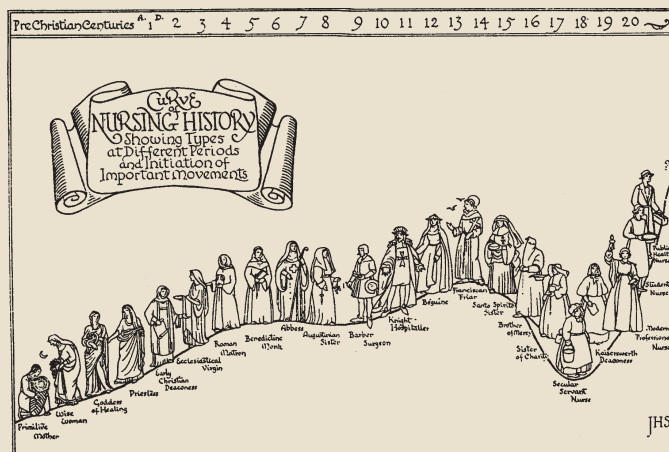 Pre Christian Centuries A.D. 1 2 3 4 5 6 7 8 9 10 11 12 13 14 15 16 17 18 19 20
Curve
of
NURSING HISTORY
Showing Types
at Different Periods
and Initiation of
Important Movements
?
Primitive
Mother
Wise
Woman
Goddess
of Healing
Priestess
Early
Christian
Deaconess
Ecclesiastical
Virgin
Roman
Matron
Benedictine
Monk
Abbess
Augustinian
Sister
Barber
Surgeon
Knight
Hospitaller
Béguine
Franciscan
Friar
Santo Spirito
Sister
Brother
of Mercy
Sister
of Charity
Secular
Servant
Nurse
Kaiserswerth
Deaconess
Modern
Professione
Nurse
Student
Nurse
Public
Health
Nurse
JHS